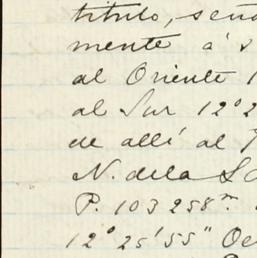 titulo, seña
mente á s
al Oriente 1
al Sur 12°2
de allí al
N. dela S
P. 103 258m.
12° 25' 55" Oe